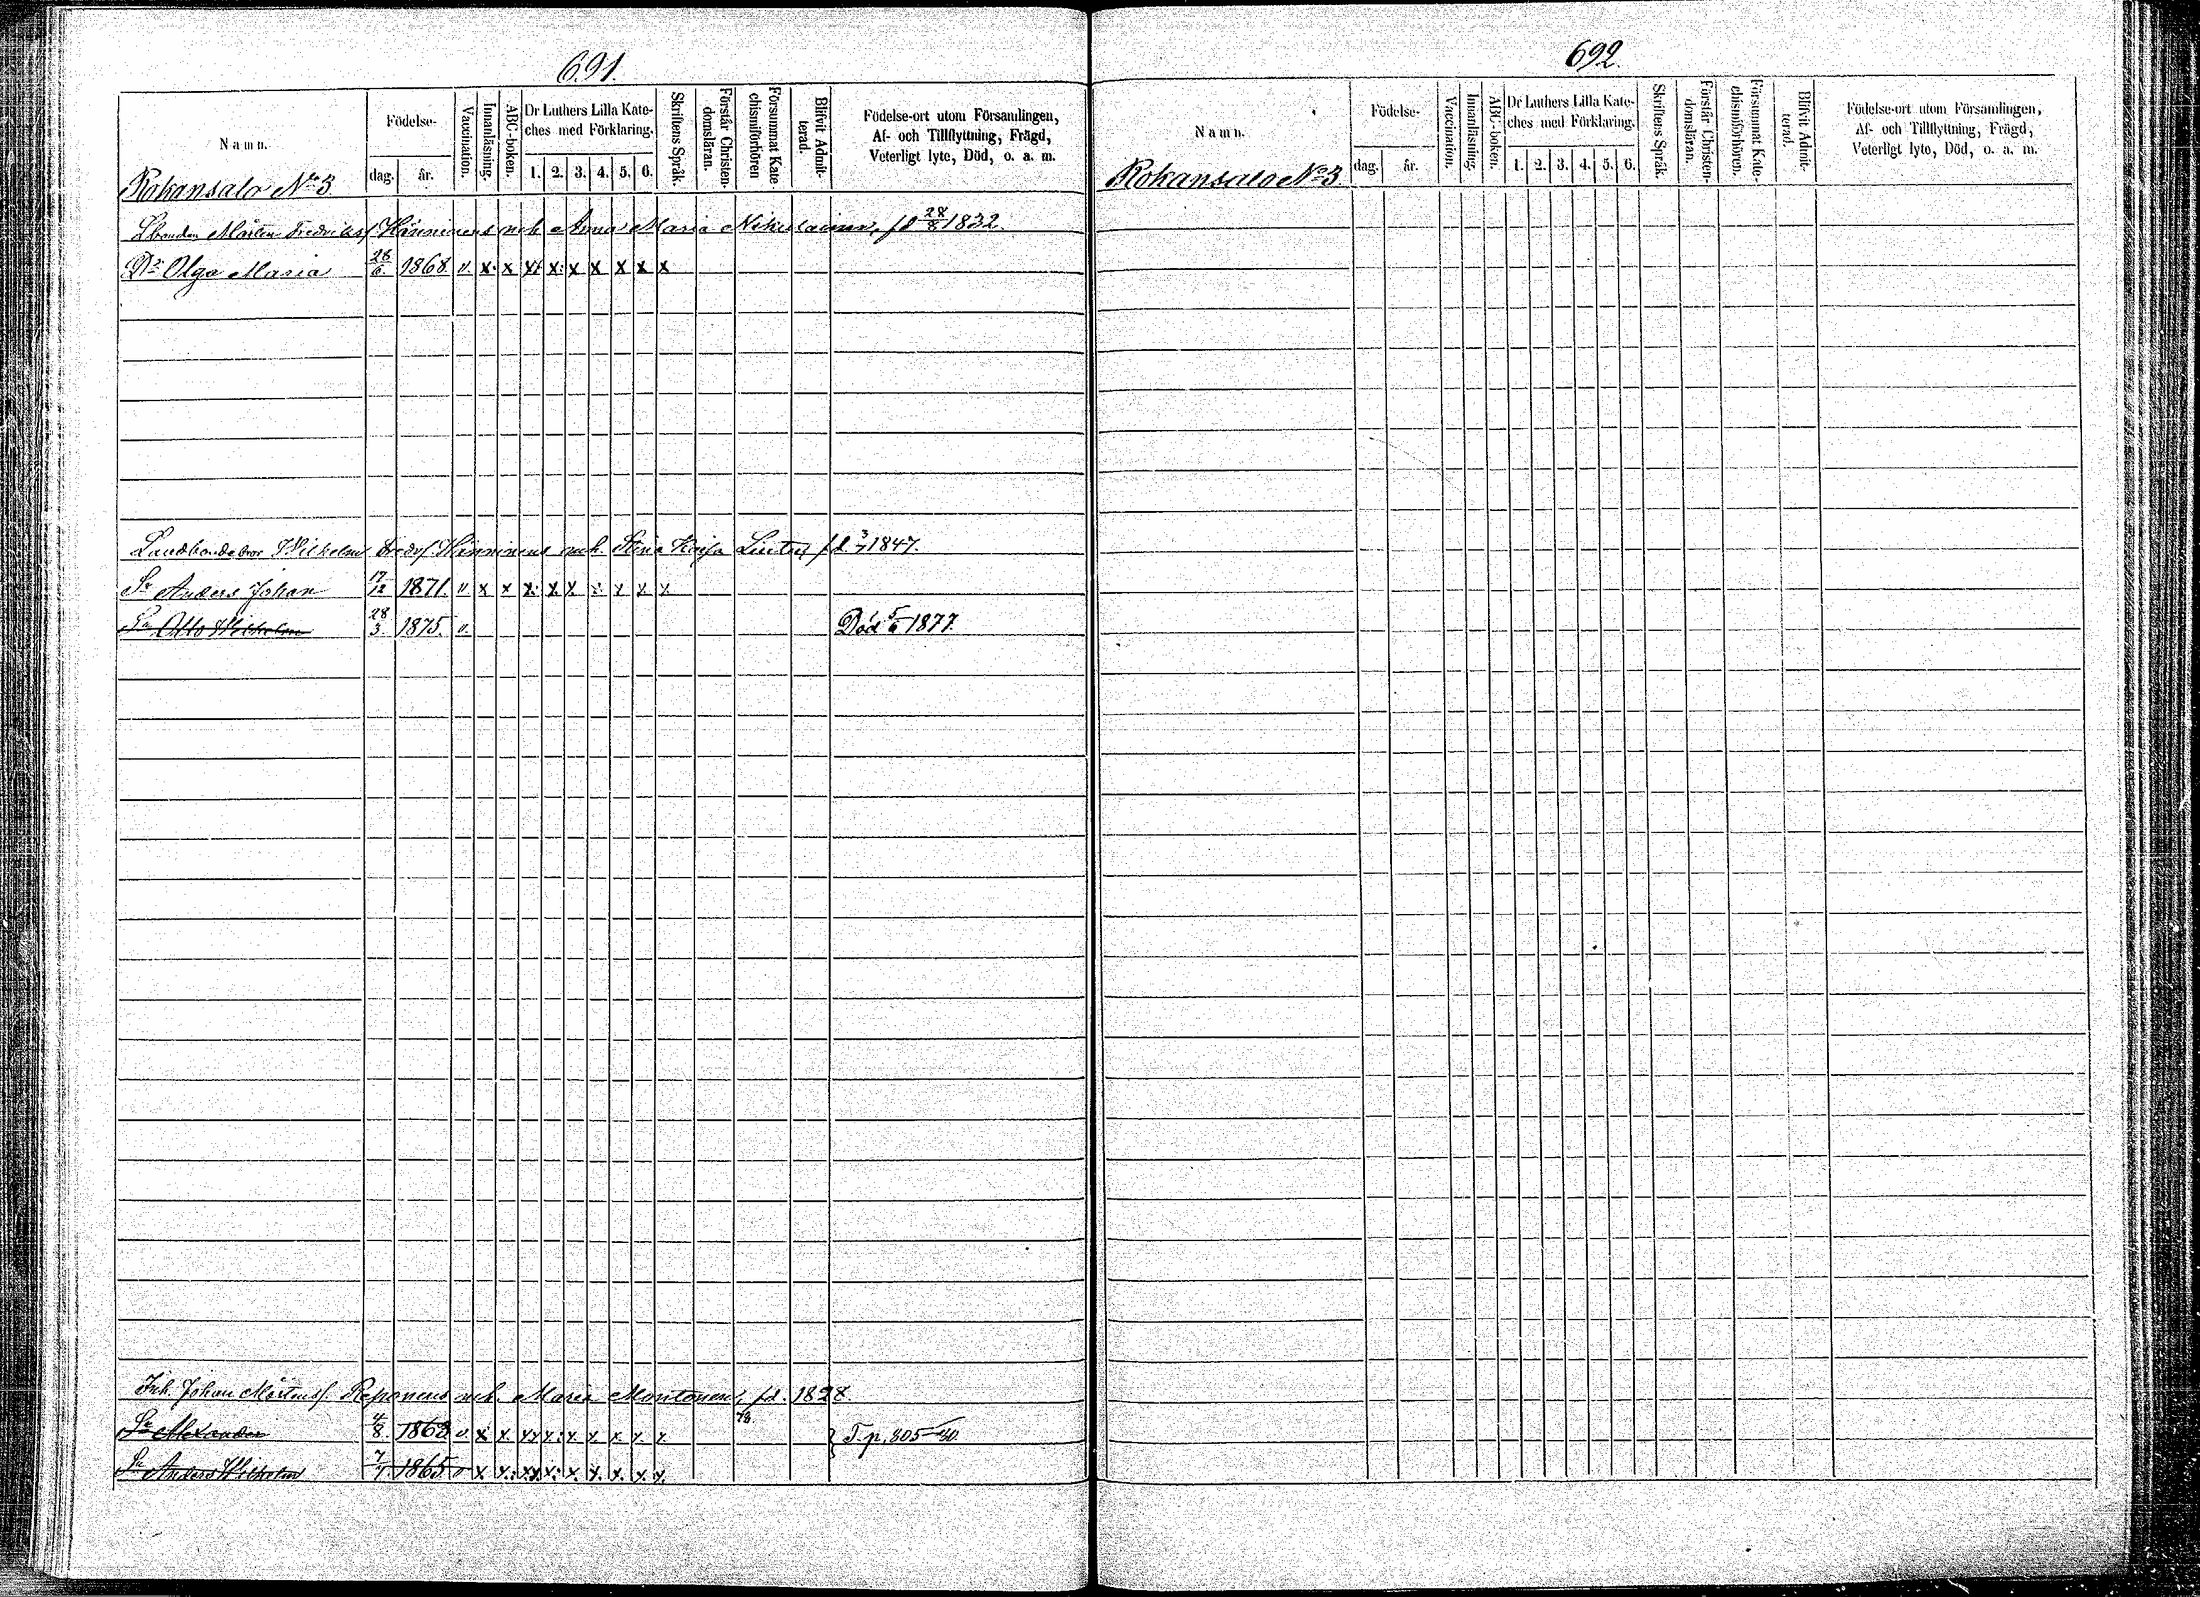 691.
Namn.
Födelse-
dag.
år.
Vaccination.
Innanläsning.
ABC-boken.
Dr Luthers Lilla Kate-
ches med Förklaring.
1. 2. 3. 4. 5. 6.
Skriftens Språk.
Förstår Christen-
domsläran.
Försummat Kate
chismiförhören
Blifvit Admit-
terad.
Födelse-ort utom Församlingen,
Af- och Tillflyttning, Frägd,
Veterligt lyte, Död, o. a. m.
Rokansalo No 3.
Mårten Fredrikss Hänninens och Anna Maria fd 28/8 1832.
Dr Olga Maria 28/6 1868. v. x. x x x x x x x x
Landbonde Wilhelm Hänninens och Stina Kaisa fd 3/7 1847.
Sn Anders Johan 17/12 1871. v x x x: x x x x x x
Sn Otto Wilhelm 28/3. 1875. v. Död 5/6 1877.
Inh. Johan Mårtenss. Reponens och Maria Montonen, fd. 1828.
78
Sn Alexander 4/8. 1862 v. x x. xx x: x x. x. x. x. } T. p. 805 - 80
Sn Anders Wilhelm 7/7. 1865 v x x. xx x: x. x. x. x. x.
692.
Namn.
Födelse-
dag.
år.
Vaccination.
Innanläsning.
ABC-boken.
Dr Luthers Lilla Kate-
ches med Förklaring.
1. 2. 3. 4. 5. 6.
Skriftens Språk.
Förstår Christen-
domsläran.
Försummat Kate-
chismiförhören.
Blifvit Admit-
terad.
Födelse-ort utom Församlingen,
Af- och Tillflyttning, Frägd,
Veterligt lyte, Död, o. a. m.
Rokansalo No 3.